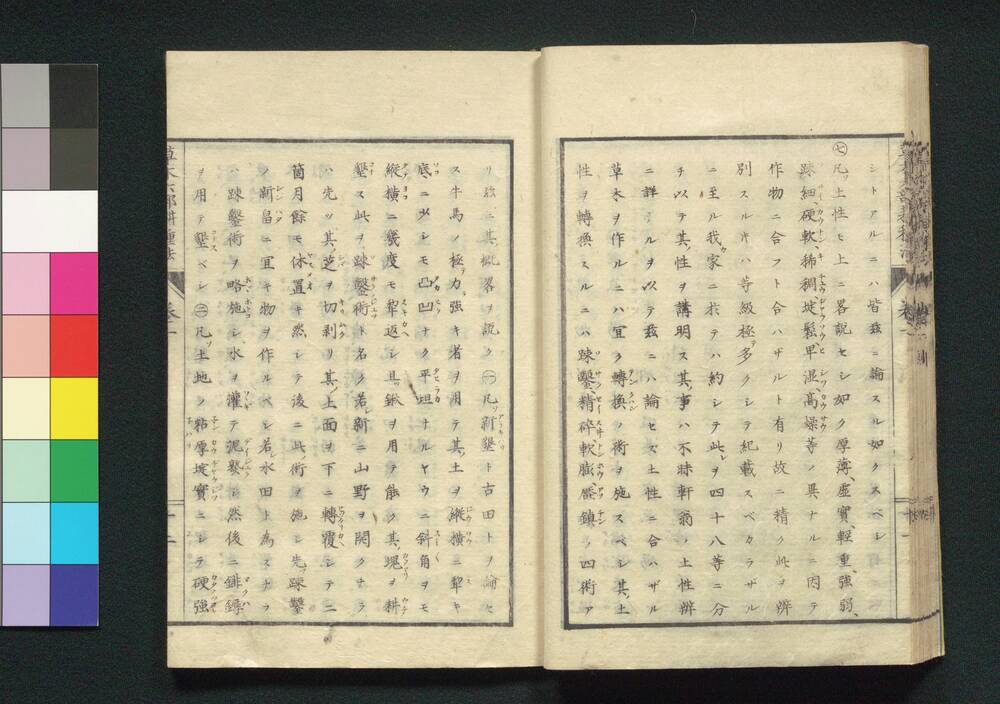 シトアルニハ皆玆ニ論スル如クスベシ
㊆凡ソ土性ヒ上ニ畧説セシ如ク厚薄、虚實、輕重、強弱、
踈細、硬軟、稀稠、埏鬆、早湿、髙燥等ノ異ナルニ因テ
作物ニ合フト合ハザルト有リ故ニ精ク此ヲ辨
別スルキハ等級極テ多クシテ紀載スベカラザル
ニ至ル我家ニ於テハ約シテ此レヲ四十八等ニ分
チ以テ其性ヲ講明ス其事ハ不昧軒翁ノ土性辨
ニ詳ナルヲ以テ玆ニハ論セズ土性ニ合ハザル
草木ヲ作ルニハ宜ク轉換ノ術ヲ施スベシ其土
性ヲ轉換スルニハ踈鑿、精碎、軟膨、鎮ノ四術ア
リ故ニ其概畧ヲ説ク㊀凡ソ新墾ト古田トヲ論セ
ス牛馬ノ極テ力強キ者ヲ用テ其土ヲ縱横ニ犂キ
底ニ少シモ凸凹ナク平坦ナルヤウニ斜角ヲモ
縱横ニ幾度モ犂返シ且鍬ヲ用テ能ク其塊ヲ耕
墾ス此ヲ踈鑿術ト名ク若シ新ニ山野ヲ開クナラ
ハ先ツ其芝ヲ切剥リ其上面ヲ下ニ轉覆シテ二
箇月餘モ休置キ然シテ後ニ此術ヲ施シ先ツ踈鑿
ノ新畠ニ宜キ物ヲ作ルベシ若シ水田ト為スナラ
ハ踈鑿術ヲ略施シ水ヲ灌テ泥塾シ然後ニ鍬
ヲ用テ墾スベシ㊁凡ソ土地ノ粘厚埏實ニシテ硬強
草木六部耕種法